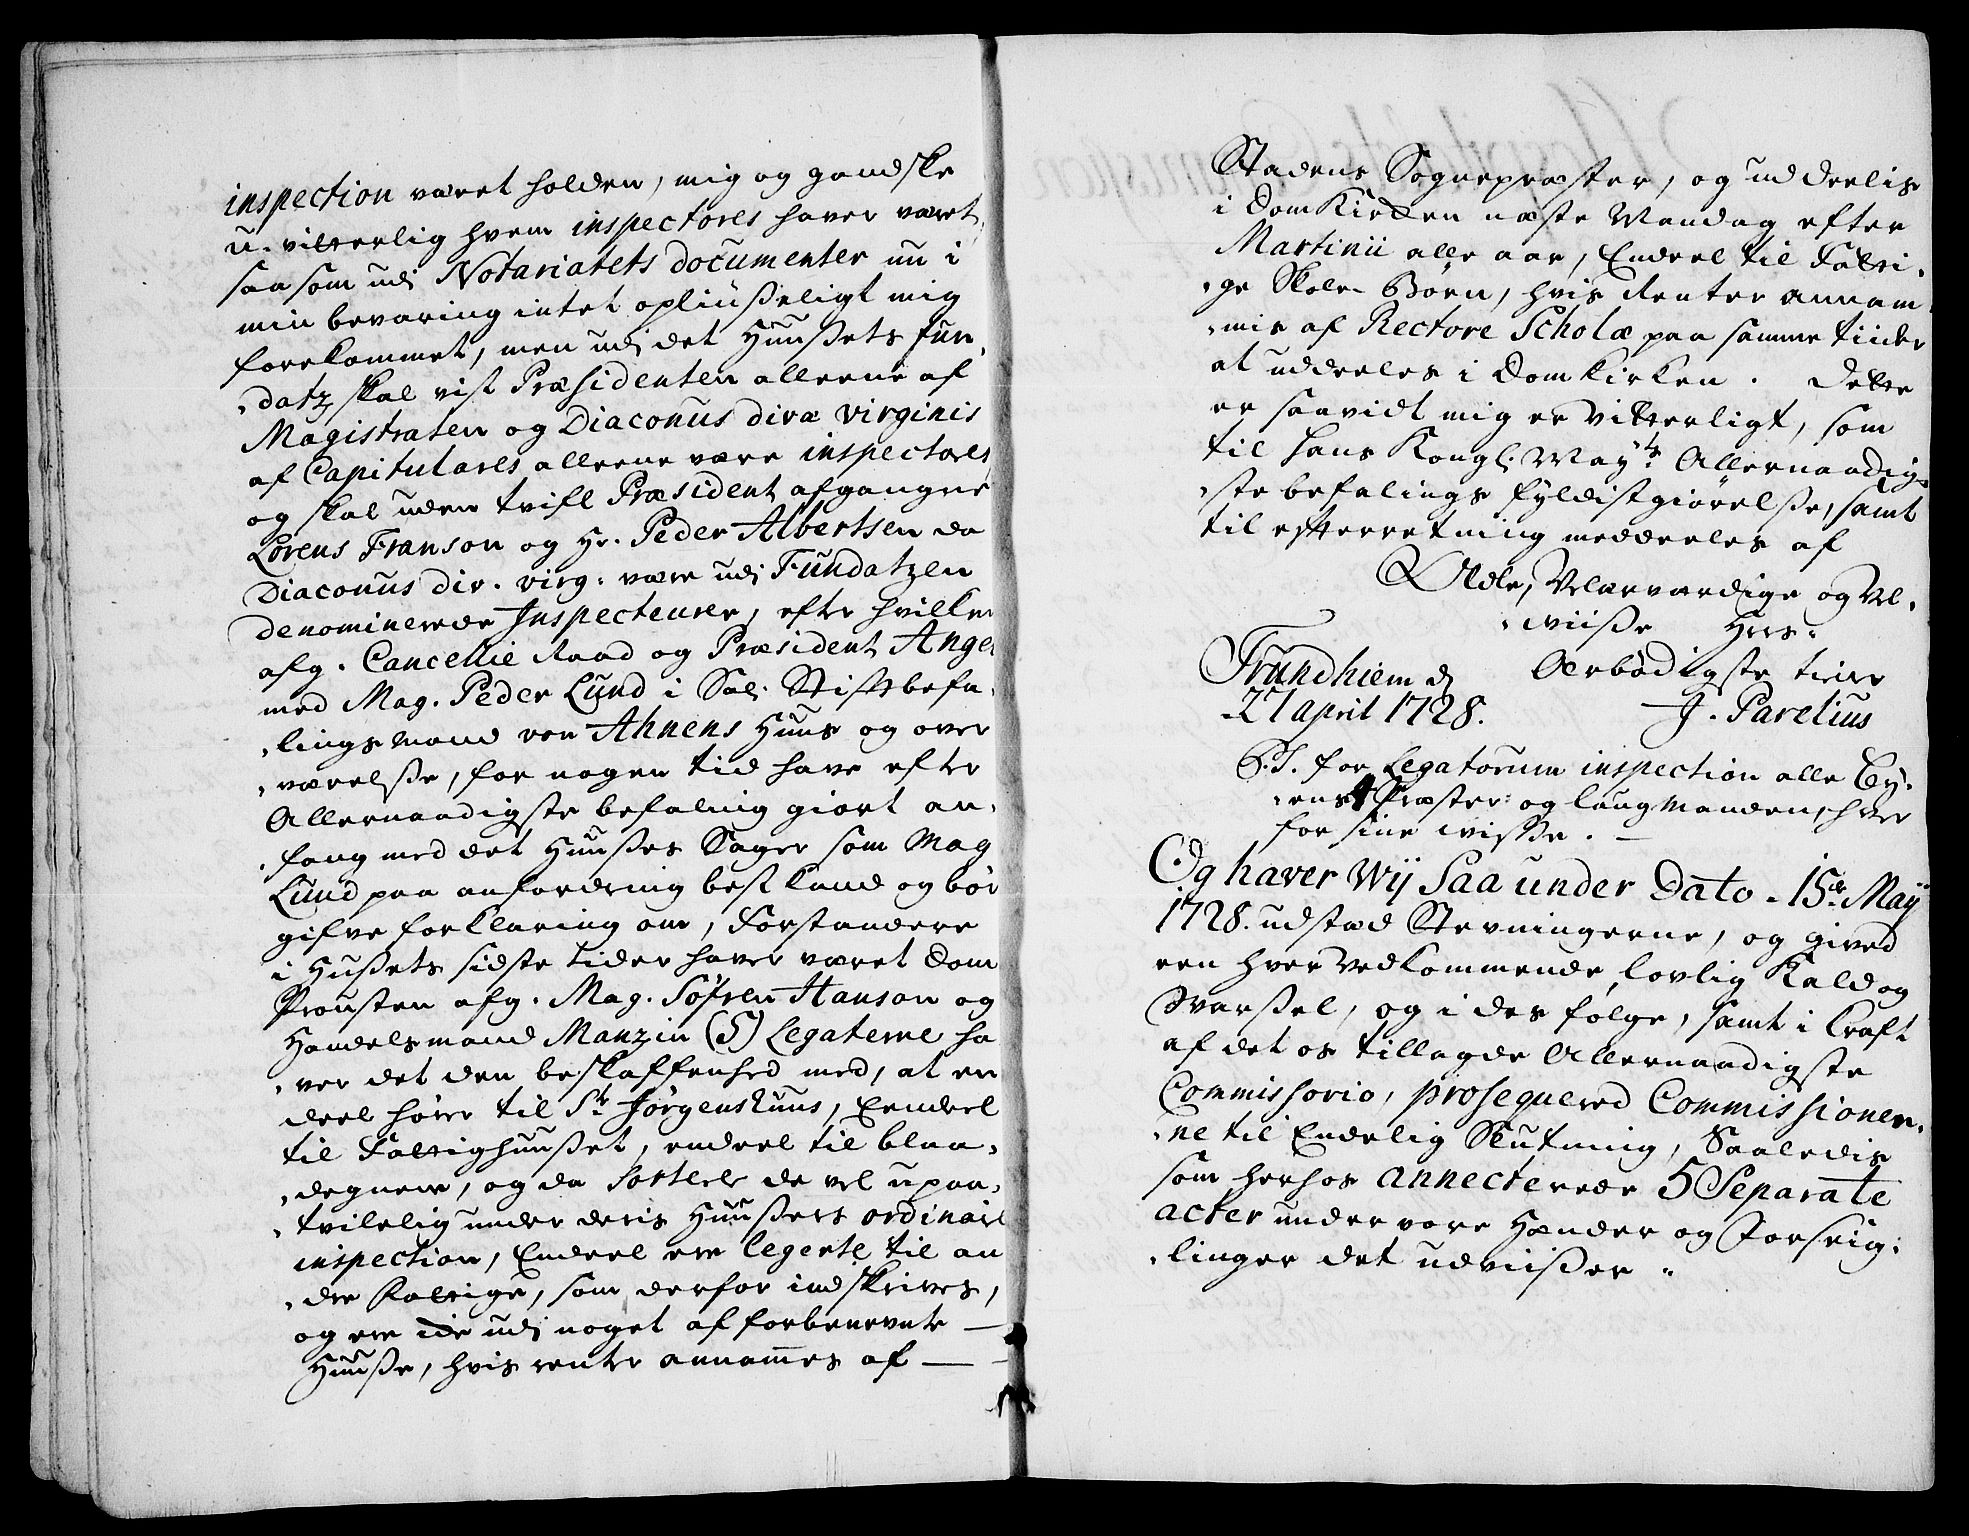 inspection været holden, mig og gandske
u-vitterlig hvem inspectores haver været,
saa som udj Notariatets documenter nu i
min bevaring intet oplyuseligt mig
forekommet, men udj det Huusets fun-
datz skal vist Præsidenten alleene af
Magistraten og Diaconus divæ virginis
af Capitulares alleene være inspectores
og skal uden tvifl Præsident afgangne
Lorens Franson og Hr. Peder Albertsen da
Diaconus div. virg: være udj Fundatzen
denominerede Inspecteurer, efter hvilke
afg. Cancellie Raad og Præsident Angel
med Mag. Peder Lund i Sal. Stiftbefa-
lings Mand von Ahnens Huus og over
værelsse, for nogen tid have efter
Allernaadigste befaling giort an-
fang med det Huusses Sager som Mag
Lund paa anfordring best kand og bør
gifve forklaring om, Forstandere
i Husets sidste tider haver været Dom
Prousten afg. Mag. Søfren Hanson og
Handelsmand Manzin (5) Legaterne ha
ver det den beskaffenhed med, at en
deel hører til St. Jørgens huus, Eendeel
til Fattighuuset, endeel til blaa-
degnene, og da sorterer de vel upaa-
tvilelig under deris Huussers ordinair
inspection, Endeel ere legerte til an
dre Fattige, som derfor indskrives,
og ere icke udj noget af forbenevnte
Huusse, hvis rente annammes af
Stadens Sogneprester, og uddeelis
i DomKirken næste Mandag efter
Martinii alle aar, Endeel til Fatti-
ge Skole Børn, hvis Renter annam-
mis af Rectore Scholæ paa samme tiider
at uddeeles i Domkirken. Dette
er saavidt mig er Vitterligt, som
til hans Kongl. May.ts Allernaadig-
ste befalings fyldistgiørelsse, samt
til efterretning meddeeles af
Ædle, Velærværdige og Vel-
wiisse Hrrs:
Trundhiem d Ærbødigste tiener
27 april 1728. J. Parelius
P.S. for Legatorum inspection alle By-
ens 4 Præster og laugmanden, hver
for sine wisse.
Og haver Wij Saa under Dato 15de Maij
1728. udstæd Stevningerne, og gived
een hver Vedkommende, lovlig Kald og
Varssel, og i des følge, samt i Kraft
af det os tillagde Allernaadigste
Commissorio, prosequered Commissionen-
ne til Endelig Slutning, Saaledis
som herhos annecterede 5 Separate
acter under vore Hænder og Forseig-
linger det udviisser.